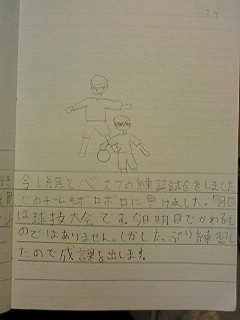 今1組とバスケの練習試合をしました
どのチームもボロボロに負けました。明日
は球技大会です。今日明日でかわるも
のではありません。しかしたっぷり練習し
たので成課を出します。